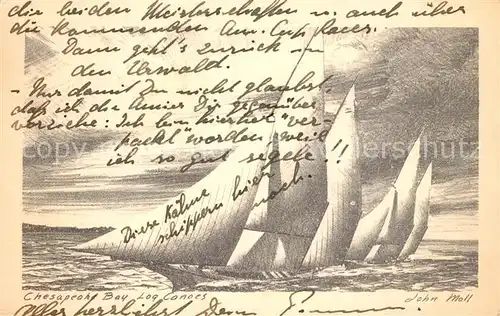 die beiden Meisterschaften u. auch über
die kommenden Am. Cup Races.
Dann geht's zurück in
den Urwald.
- Nur damit Du nicht glaubst,
daß ich die Amies Dir gegenüber
vorziehe: Ich bin hierher "ver-
packt" worden, weil
ich so gut segele!!
Diese Kähne
schippern hier
noch.
Chesapeake Bay Log Canoes
John Moll
Alles herzlichst Dein